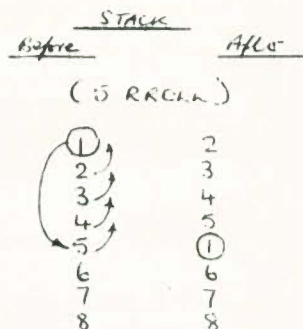 STACK
Before After
(5 RROLL)
1 2
2 3
3 4
4 5
5 1
6 6
7 7
8 8